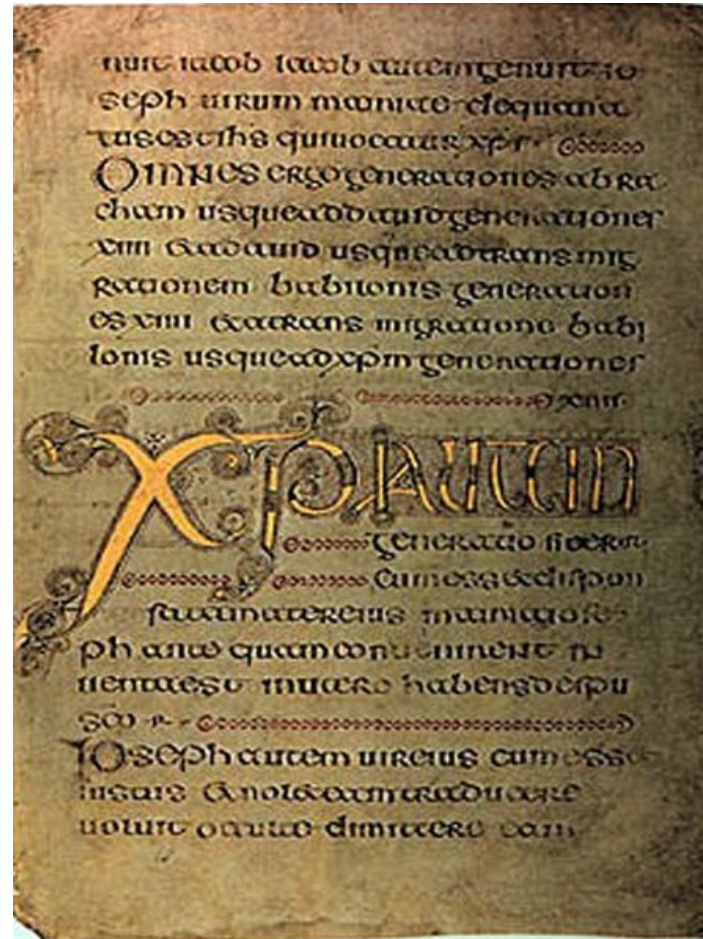 nuit iacob Iacob autem genuit io
seph uirum mariae de qua na
tus est ihs qui uocatur xps
Omnes ergo generationes ab ra
cham usque ad dauid generationes
xiiii & a dauid usque ad trans mig
rationem babilonis generation
es xiiii & a trans migratione babi
lonis usque ad xpm generationes
xiiii
XPI AUTEM
generatio sic erat
cum ess& dispon
sata mater eius maria iose
ph ante quam conuenirent in
uenta est in utero habens de spu
sco
Ioseph autem uir eius cum esse
iustus & nol& eam traducere
uoluit occulte dimittere eam